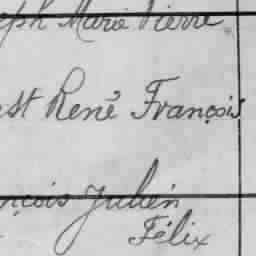 eph Marie Pierre
st René François
nçois Julien
Félix